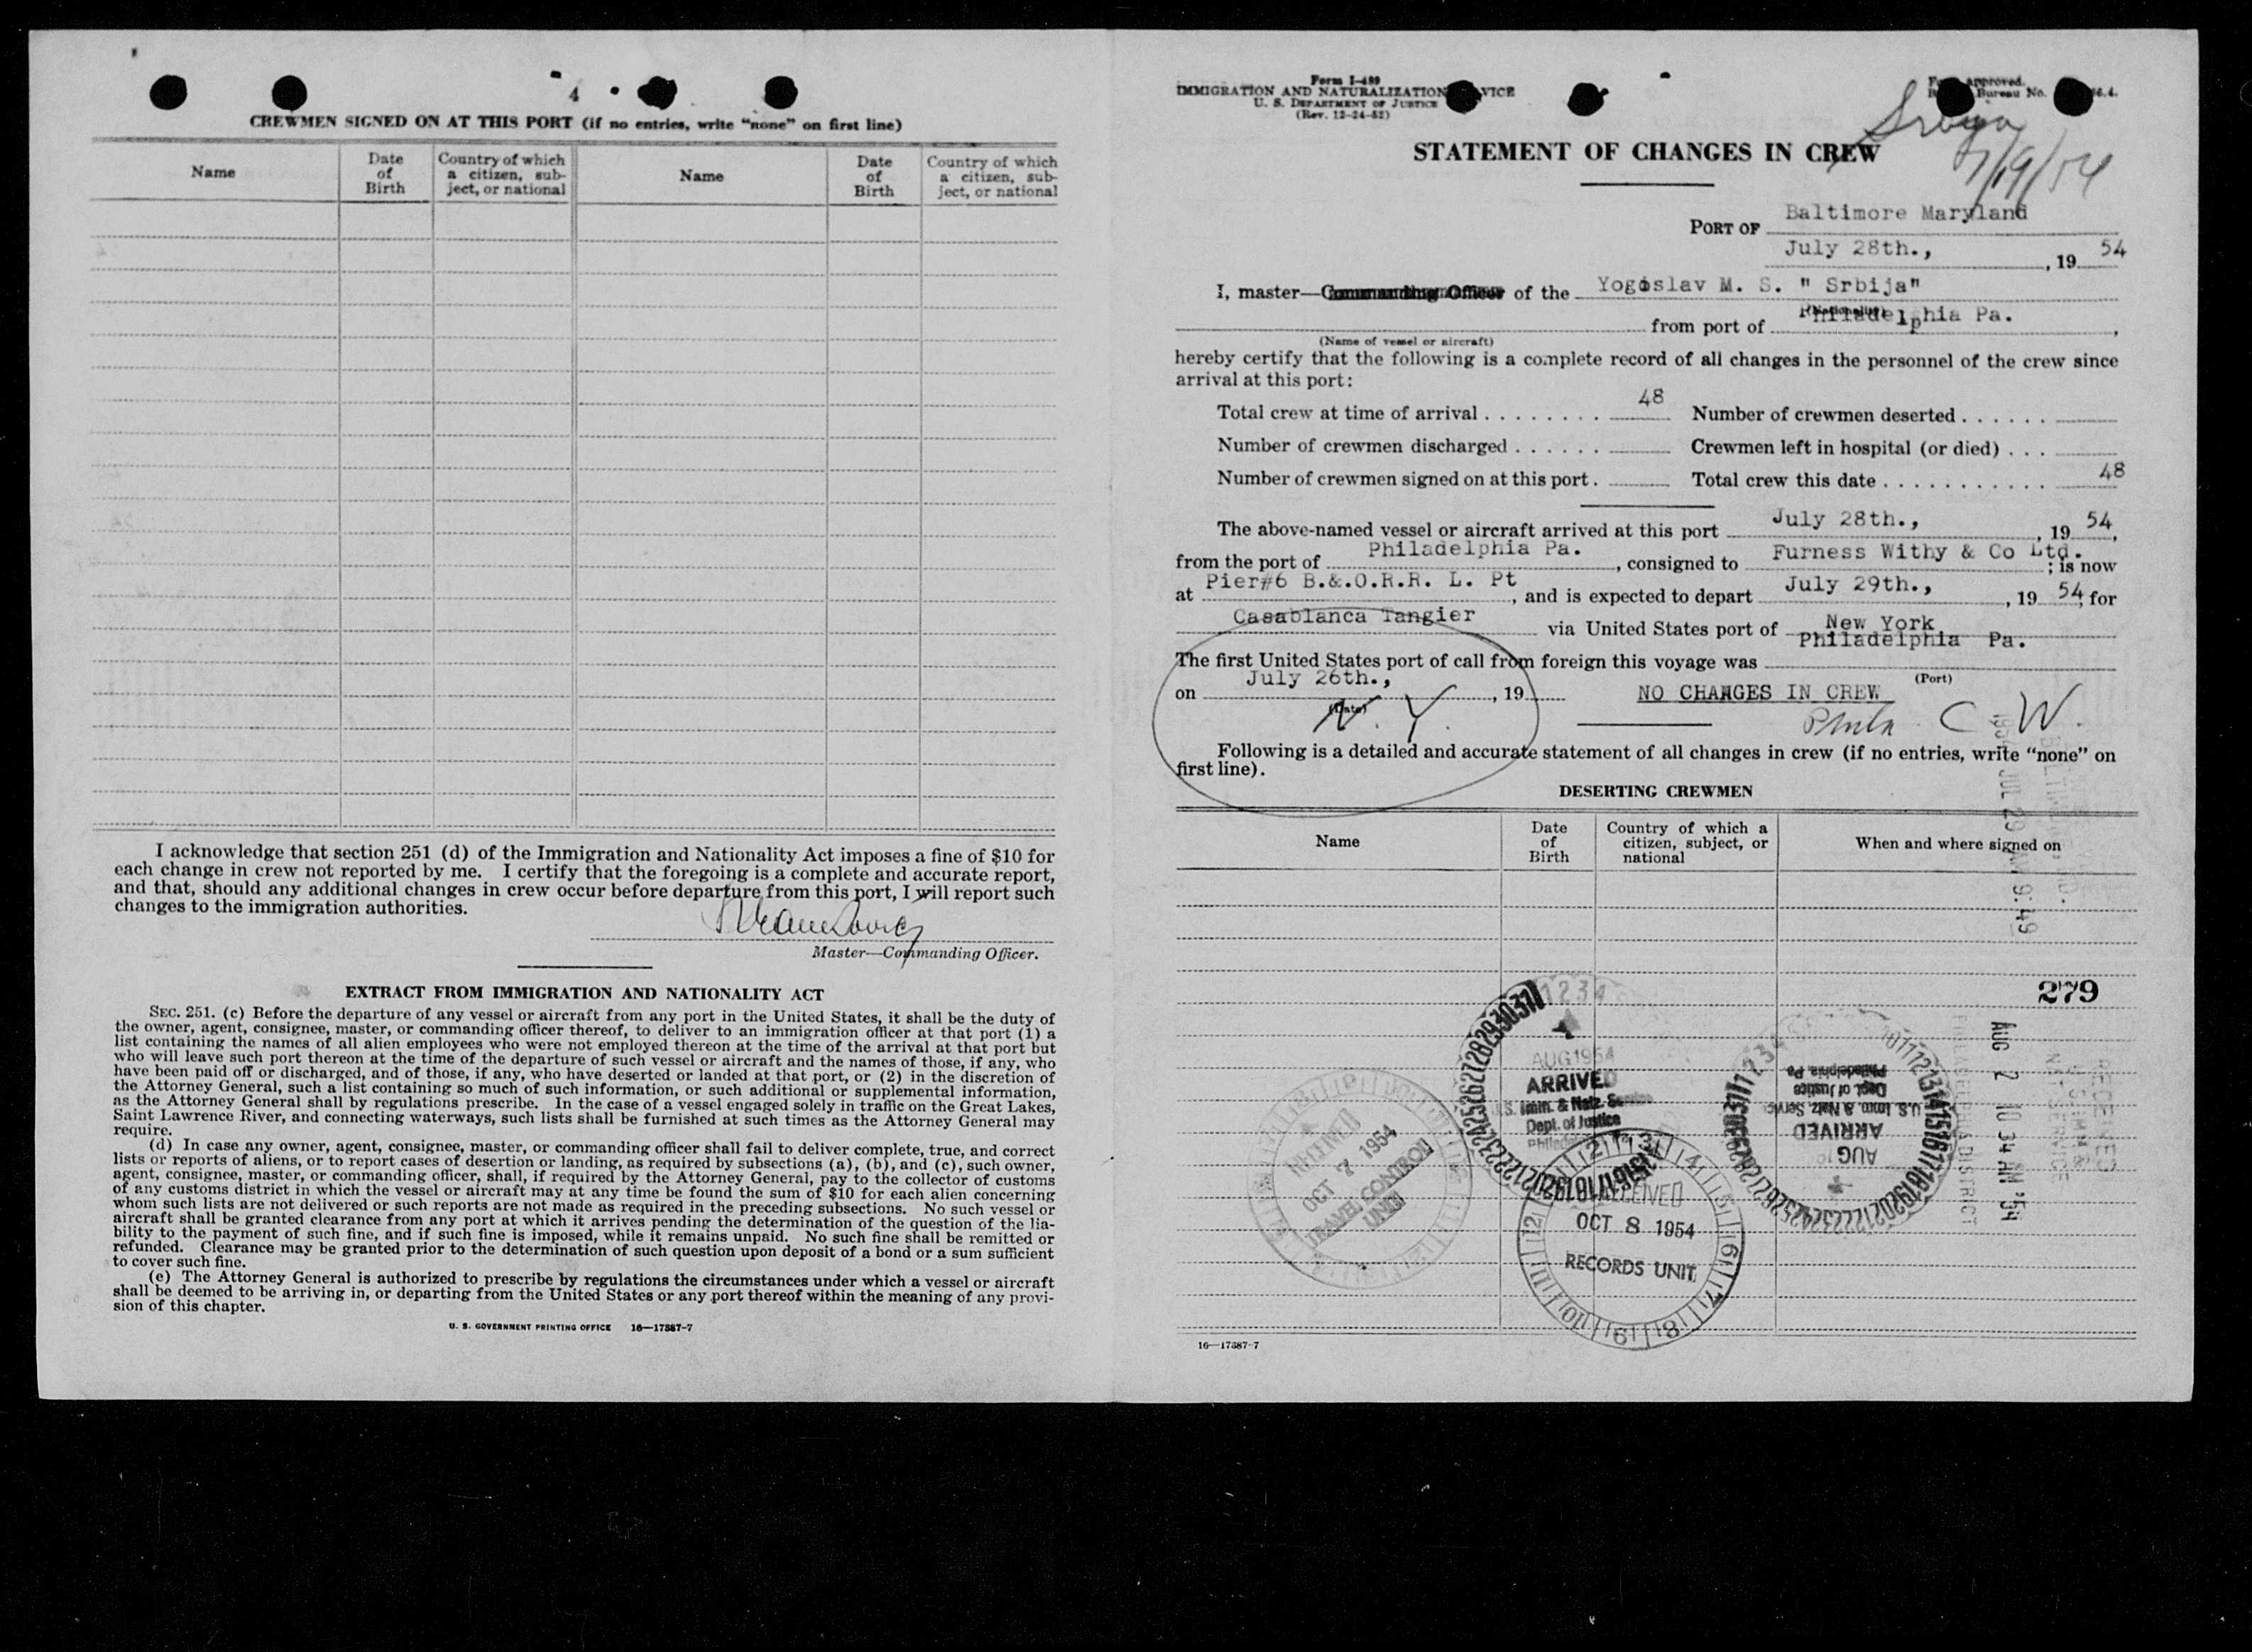 4
CREWMEN SIGNED ON AT THIS PORT (if no entries, write "none" on first line)
Name
Date of Birth
Country of which a citizen, subject, or national
Name
Date of Birth
Country of which a citizen, subject, or national
I acknowledge that section 251 (d) of the Immigration and Nationality Act imposes a fine of $10 for
each change in crew not reported by me. I certify that the foregoing is a complete and accurate report,
and that, should any additional changes in crew occur before departure from this port, I will report such
changes to the immigration authorities.
Master—Commanding Officer.
EXTRACT FROM IMMIGRATION AND NATIONALITY ACT
SEC. 251. (c) Before the departure of any vessel or aircraft from any port in the United States, it shall be the duty of
the owner, agent, consignee, master, or commanding officer thereof, to deliver to an immigration officer at that port (1) a
list containing the names of all alien employees who were not employed thereon at the time of the arrival at that port but
who will leave such port thereon at the time of the departure of such vessel or aircraft and the names of those, if any, who
have been paid off or discharged, and of those, if any, who have deserted or landed at that port, or (2) in the discretion of
the Attorney General, such a list containing so much of such information, or such additional or supplemental information,
as the Attorney General shall by regulations prescribe. In the case of a vessel engaged solely in traffic on the Great Lakes,
Saint Lawrence River, and connecting waterways, such lists shall be furnished at such times as the Attorney General may
require.
(d) In case any owner, agent, consignee, master, or commanding officer shall fail to deliver complete, true, and correct
lists or reports of aliens, or to report cases of desertion or landing, as required by subsections (a), (b), and (c), such owner,
agent, consignee, master, or commanding officer, shall, if required by the Attorney General, pay to the collector of customs
of any customs district in which the vessel or aircraft may at any time be found the sum of $10 for each alien concerning
whom such lists are not delivered or such reports are not made as required in the preceding subsections. No such vessel or
aircraft shall be granted clearance from any port at which it arrives pending the determination of the question of the lia-
bility to the payment of such fine, and if such fine is imposed, while it remains unpaid. No such fine shall be remitted or
refunded. Clearance may be granted prior to the determination of such question upon deposit of a bond or a sum sufficient
to cover such fine.
(e) The Attorney General is authorized to prescribe by regulations the circumstances under which a vessel or aircraft
shall be deemed to be arriving in, or departing from the United States or any port thereof within the meaning of any provi-
sion of this chapter.
U. S. GOVERNMENT PRINTING OFFICE 16—17387-7
Form I-489
IMMIGRATION AND NATURALIZATION VICE
U. S. DEPARTMENT OF JUSTICE
(Rev. 12-24-52)
Approved.
Bureau No. 6.4.
STATEMENT OF CHANGES IN CREW
7/19/54
PORT OF Baltimore Maryland
July 28th., , 19 54
I, master—Commanding Officer of the Yogoslav M. S. " Srbija"
(Nationality)
from port of Philadelphia Pa. ,
(Name of vessel or aircraft)
hereby certify that the following is a complete record of all changes in the personnel of the crew since
arrival at this port:
Total crew at time of arrival . . . . . . . . 48 Number of crewmen deserted . . . . . .
Number of crewmen discharged . . . . . . Crewmen left in hospital (or died) . . .
Number of crewmen signed on at this port . Total crew this date . . . . . . . . . . . 48
The above-named vessel or aircraft arrived at this port July 28th., , 19 54,
from the port of Philadelphia Pa. , consigned to Furness Withy & Co Ltd. ; is now
at Pier#6 B.&.O.R.R. L. Pt , and is expected to depart July 29th., , 19 54, for
Casablanca Tangier via United States port of New York
Philadelphia Pa.
The first United States port of call from foreign this voyage was
(Port)
on July 26th., , 19 NO CHANGES IN CREW
(Date)
N. Y. Phila C W.
Following is a detailed and accurate statement of all changes in crew (if no entries, write "none" on
first line).
DESERTING CREWMEN
Name
Date of Birth
Country of which a citizen, subject, or national
When and where signed on
1954 JUL 29 AM 9:49
279
AUG 1954
ARRIVED
U.S. Imm. & Natz. Service
Dept. of Justice
AUG
ARRIVED
U.S. Imm. & Natz. Service
Dept. of Justice
Philadelphia, Pa
AUG 2 10 34 AM '54
PHILADELPHIA DISTRICT
RECEIVED
OCT 7 1954
TRAVEL CONTROL
UNIT
RECEIVED
OCT 8 1954
RECORDS UNIT
16—17387-7